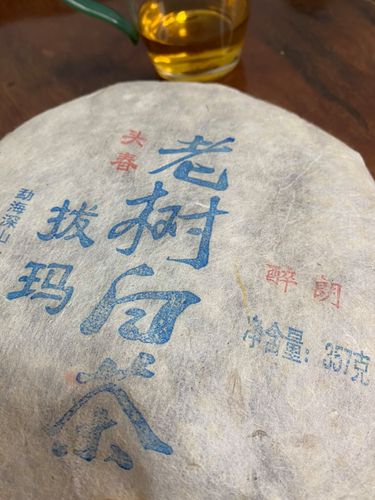 头春
老树白茶
拔玛
勐海深山
醉朗
净含量：357克